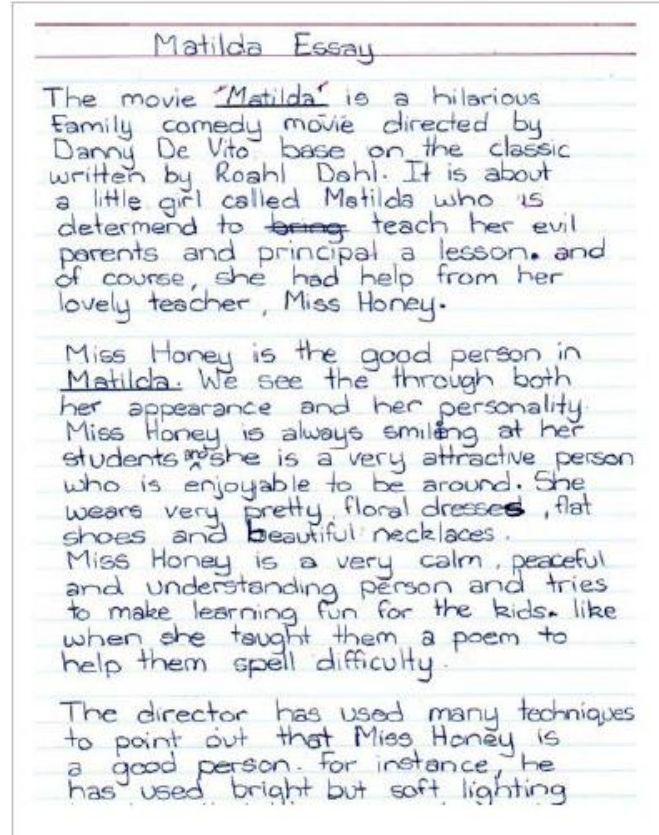 Matilda Essay
The movie "Matilda" is a hilarious
family comedy movie directed by
Danny De Vito base on the classic
written by Roahl Dahl. It is about
a little girl called Matilda who is
determend to bring teach her evil
parents and principal a lesson. and
of course, she had help from her
lovely teacher, Miss Honey.
Miss Honey is the good person in
Matilda. We see the through both
her appearance and her personality.
Miss Honey is always smiling at her
students and she is a very attractive person
who is enjoyable to be around. She
wears very pretty floral dresses, flat
shoes and beautiful necklaces.
Miss Honey is a very calm, peaceful
and understanding person and tries
to make learning fun for the kids. like
when she taught them a poem to
help them spell difficulty.
The director has used many techniques
to point out that Miss Honey is
a good person. For instance, he
has used bright but soft lighting